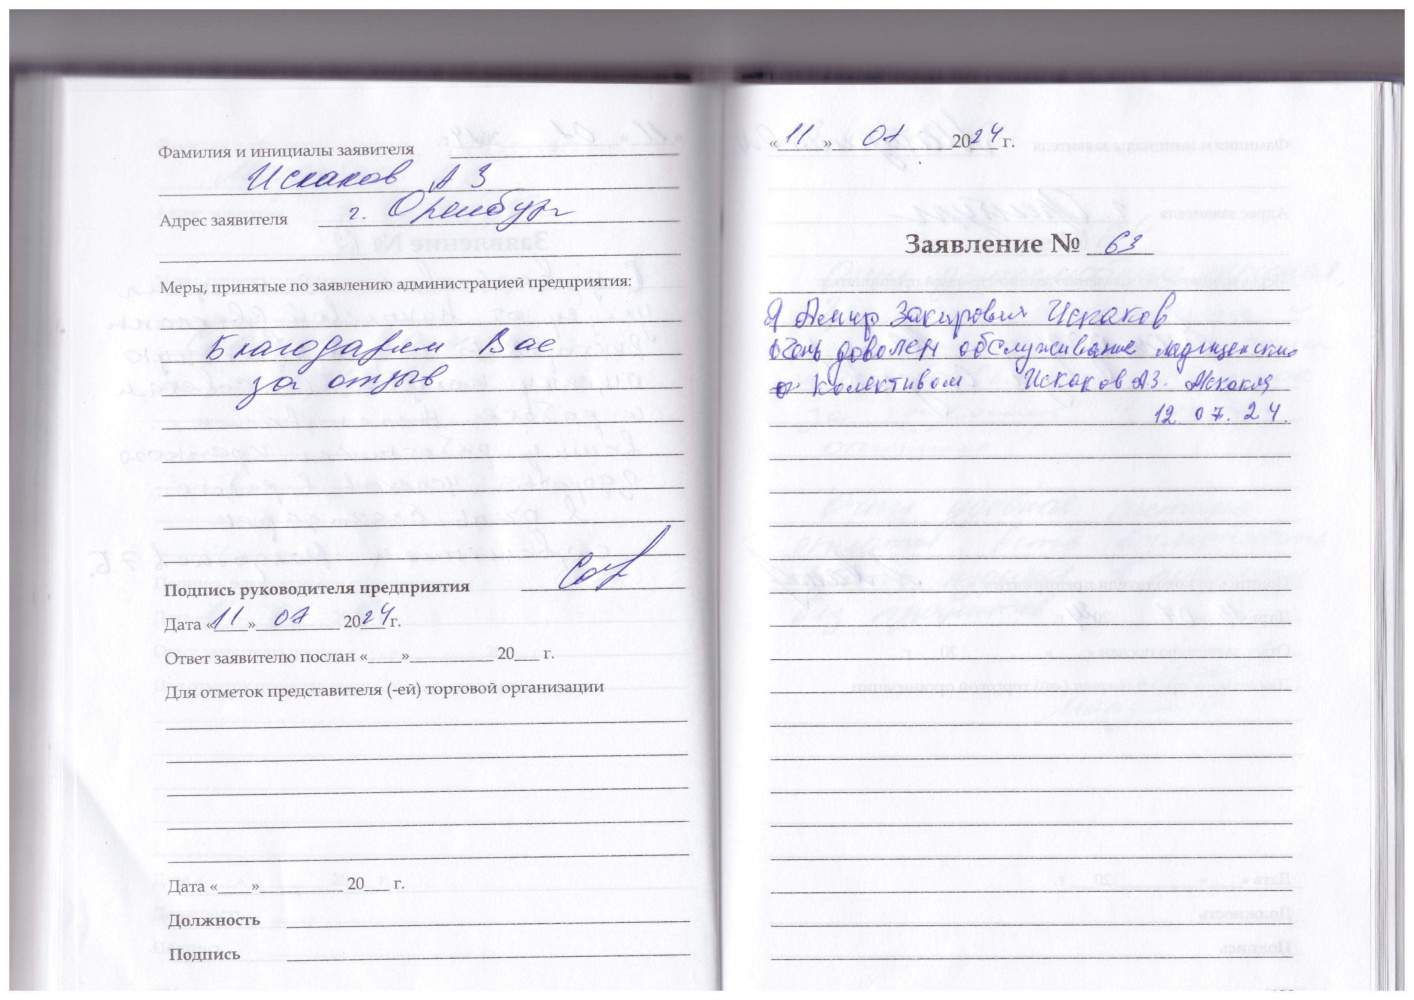 Фамилия и инициалы заявителя
Искаков А З
Адрес заявителя г. Оренбург
Меры, принятые по заявлению администрацией предприятия:
Благодарим Вас
за отзыв
Подпись руководителя предприятия
Дата «11» 07 2024 г.
Ответ заявителю послан «____»__________ 20___ г.
Для отметок представителя (-ей) торговой организации
Дата «____»__________ 20___ г.
Должность
Подпись
«11» 07 2024 г.
Заявление № 63
Я Амир Закирович Искаков
очень доволен обслуживание медиценским
колективом Искаков АЗ. Искаков
12.07.24.